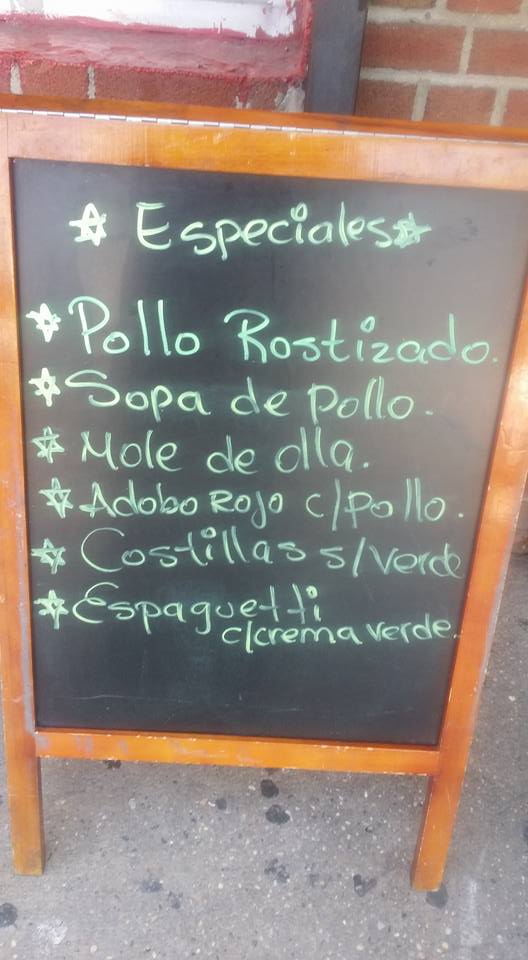 Especiales
Pollo Rostizado.
Sopa de pollo.
Mole de olla.
Adobo Rojo c/pollo.
Costillas s/verde
Espaguetti
c/crema verde.